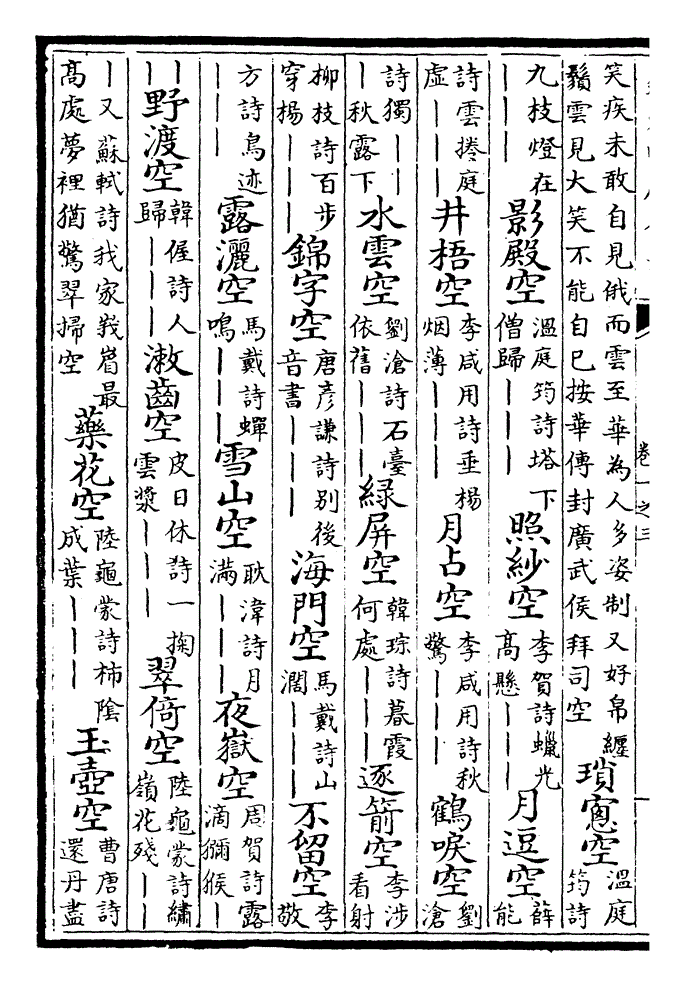 卷一之三
笑疾未敢自見俄而雲至華為人多姿制又好帛纏鬚雲見大笑不能自已按華傳封廣武侯拜司空 瑣窻空 溫庭筠詩
九枝燈在｜｜｜ 影殿空 溫庭筠詩塔下僧歸｜｜｜ 照紗空 李賀詩蠟光高懸｜｜｜ 月逗空 薛能
詩雲捲庭虛｜｜｜ 井梧空 李咸用詩垂楊烟薄｜｜｜ 月占空 李咸用詩秋驚｜｜｜ 鶴唳空 劉滄
詩獨｜｜｜秋露下 水雲空 劉滄詩石臺依舊｜｜｜ 緑屏空 韓琮詩暮霞何處｜｜｜ 逐箭空 李涉看射
柳枝詩百步穿楊｜｜｜ 錦字空 唐彦謙詩别後音書｜｜｜ 海門空 馬戴詩山濶｜｜｜ 不留空 李敬
方詩鳥迹｜｜｜ 露灑空 馬戴詩蟬鳴｜｜｜ 雪山空 耿湋詩月滿｜｜｜ 夜嶽空 周賀詩露滴獼猴
｜｜｜ 野渡空 韓偓詩人歸｜｜｜ 潄齒空 皮日休詩一掬雲漿｜｜｜ 翠倚空 陸龜蒙詩繡嶺花殘｜
｜｜又蘇軾詩我家峩眉最髙處夢裡猶驚翠掃空 藥花空 陸龜蒙詩柿陰成葉｜｜｜ 玉壺空 曹唐詩還丹盡